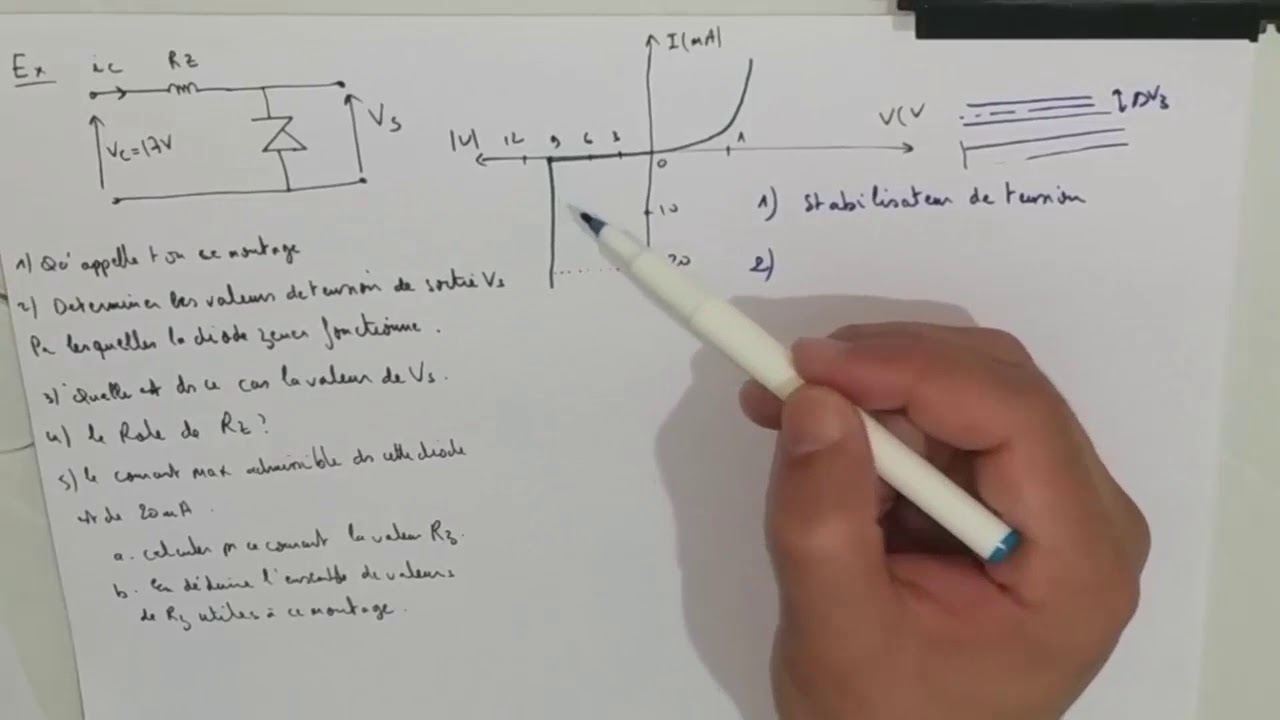 Ex
ic
RZ
Vc=17V
Vs
I(mA)
|U|
12
9
6
3
0
1
V(V
10
20
ΔVz
1) Stabilisateur de tension
2)
1) Qu'appelle t on ce montage
2) Determiner les valeurs de tension de sortie Vs
Pr lesquelles la diode zener fonctionne.
3) Quelle est ds ce cas la valeur de Vs.
4) le Role de RZ?
5) le courant max admissible ds cette diode
est de 20mA.
a. calculer pr ce courant la valeur Rz.
b. En déduire l'ensemble de valeurs
de Rz utiles à ce montage.